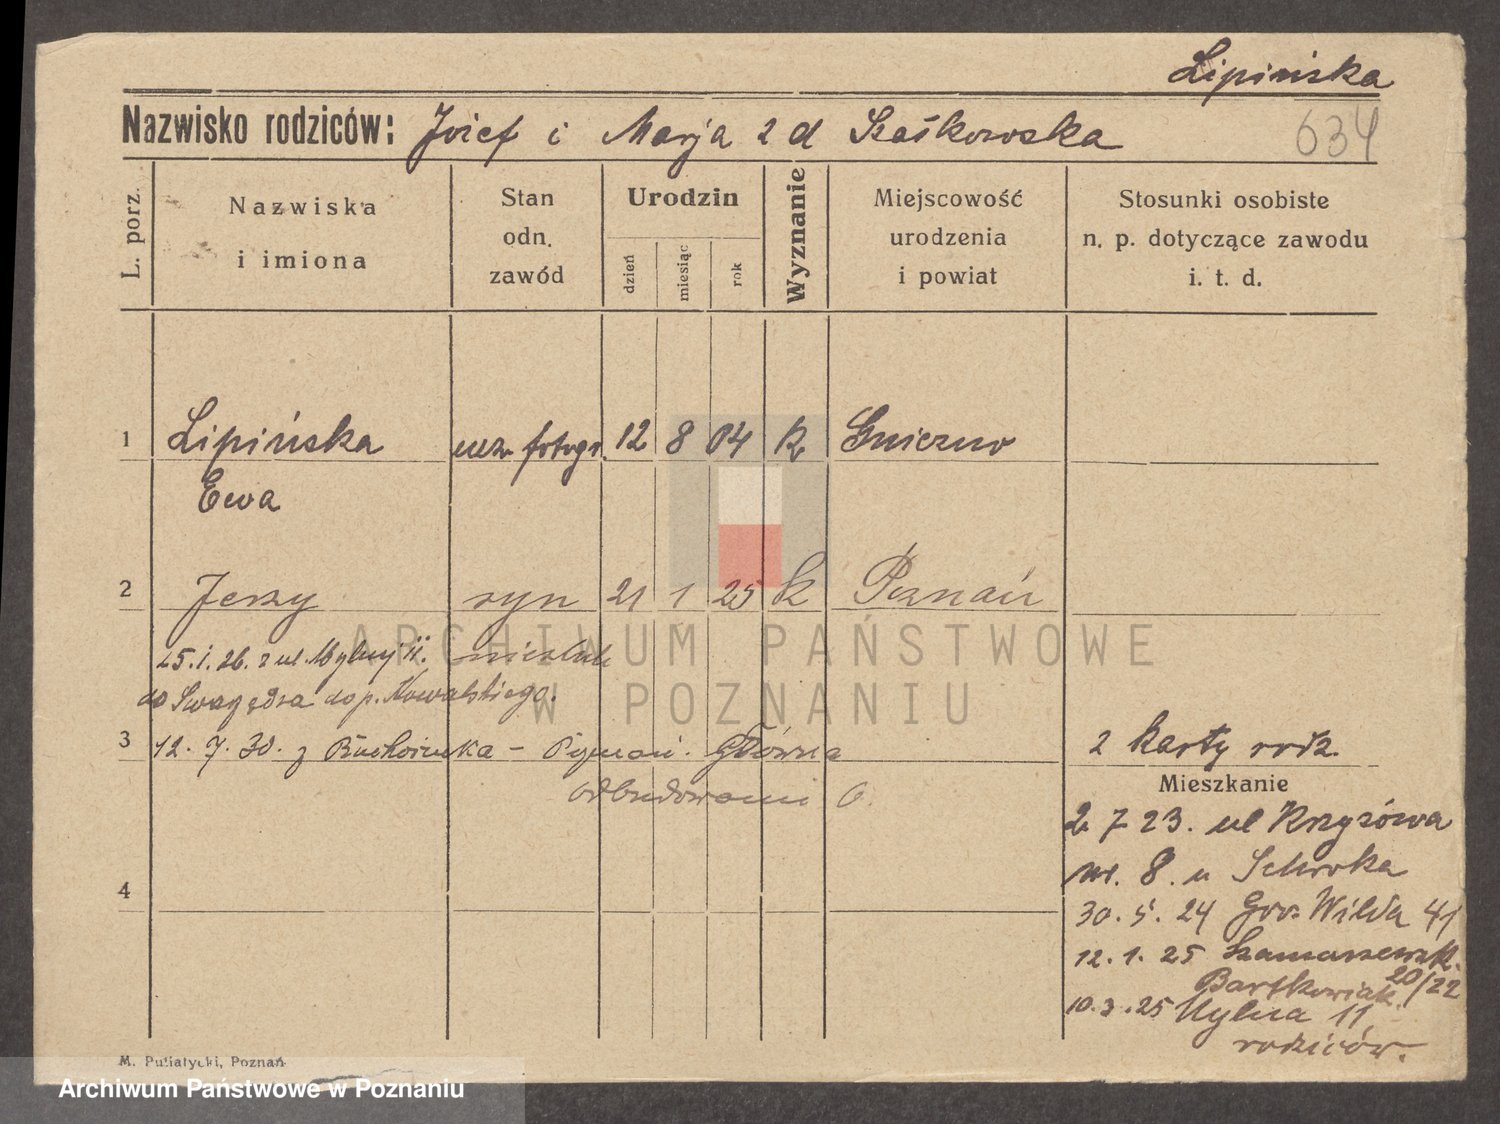 Lipińska
Nazwisko rodziców: Józef i Marja z d Szaśkowska
634
L. porz.
Nazwiska
i imiona
Stan
odn.
zawód
Urodzin
dzień
miesiąc
rok
Wyznanie
Miejscowość
urodzenia
i powiat
Stosunki osobiste
n. p. dotyczące zawodu
i. t. d.
1 Lipińska fotogr. 12 8 04 k Gniezno
Ewa
2 Jerzy syn 21 1 25 k Poznań
25. 1. 26. z ul. Mylnej 11. nieślub
do Swarzędza do p. Kowalskiego.
3 12. 7. 30. z - Poznań. Główna
6.
2 karty rodz.
Mieszkanie
2. 7 23. ul Krzyżowa
nr. 8. u
30. 5. 24 Gór. Wilda 41
12. 1. 25 Szamarzewsk.
Bartkowiak 20/22
10. 3. 25 Mylna 11
rodziców.
4
M. Putiatycki, Poznań
ARCHIWUM PAŃSTWOWE
W POZNANIU
Archiwum Państwowe w Poznaniu